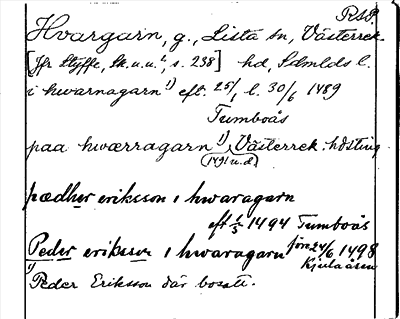 RSP.
Hvargarn, g., Lista sn, Västerrek.
[Jfr Styffe, Sk.u.u.², s. 238] hd, Sdmlds l.
i hwarnagarn¹⁾ eft. 25/1 l. 30/6 1489
Tumboås
paa hwærragarn¹⁾, Västerrek. hdsting
(1491 u.d.)
pædher eriksson i hwaragarn
eft 1/5 1494 Tumboås
Peder eriksson i hwaragarn före 24/6 1498
Kjulaåsen
¹⁾ Peder Eriksson där bosatt.